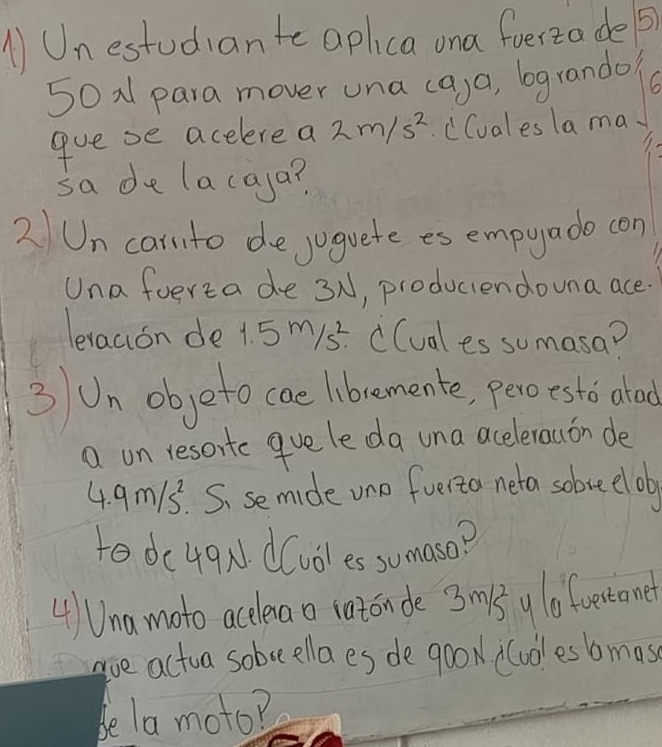 1) Un estudiante aplica una fuerza de
50 N para mover una caja, logrando
que se acelere a 2 m/s². ¿Cual es la ma
sa de la caja?
2) Un carrito de juguete es empujado con
Una fuerza de 3N, produciendo una ace-
leración de 1.5 m/s². ¿Cual es su masa?
3) Un objeto cae libremente, pero está atad
a un resorte que le da una aceleración de
4.9 m/s². Si se mide una fuerza neta sobre el obj
to de 49 N. ¿Cuál es su masa?
4) Una moto acelera a razón de 3 m/s² y la fuerza net
que actua sobre ella es de 900N ¿Cuál es la masa
de la moto?
5)
6